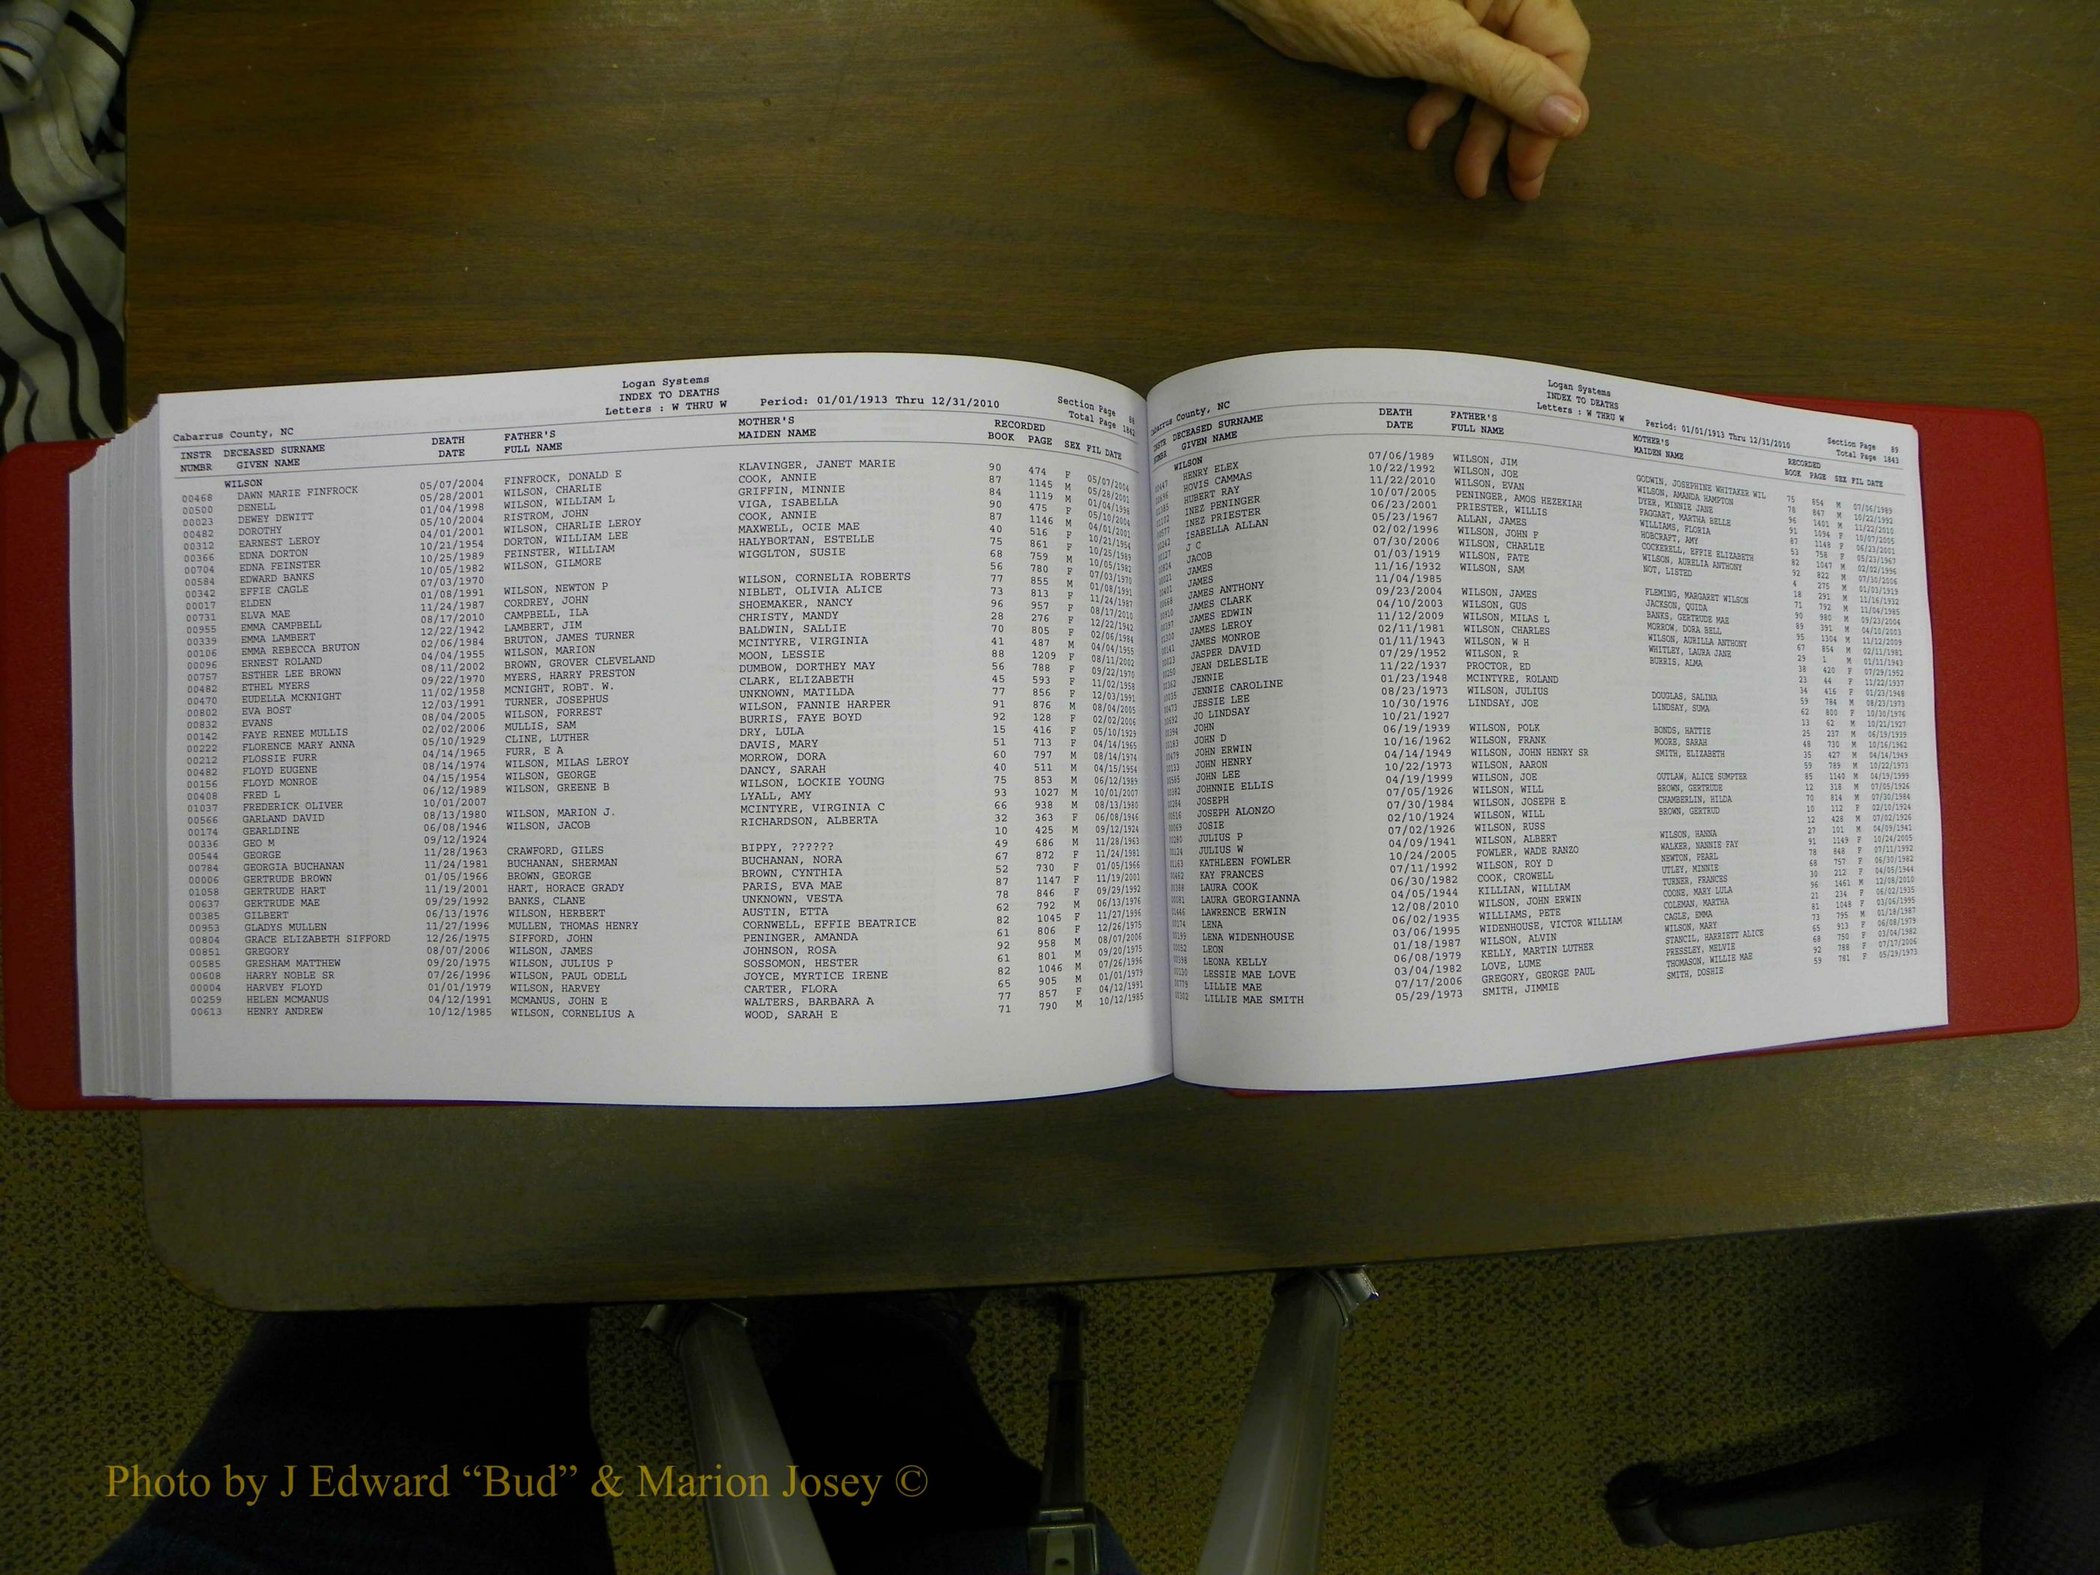 Logan Systems
INDEX TO DEATHS
Letters : W THRU W Period: 01/01/1913 Thru 12/31/2010 Section Page 88
Cabarrus County, NC Total Page 1842
INSTR DECEASED SURNAME DEATH FATHER'S MOTHER'S RECORDED
NUMBR GIVEN NAME DATE FULL NAME MAIDEN NAME BOOK PAGE SEX FIL DATE
WILSON
00468 DAWN MARIE FINFROCK 05/07/2004 FINFROCK, DONALD E KLAVINGER, JANET MARIE 90 474 F 05/07/2004
00500 DENELL 05/28/2001 WILSON, CHARLIE COOK, ANNIE 87 1145 M 05/28/2001
00023 DEWEY DEWITT 01/04/1998 WILSON, WILLIAM L GRIFFIN, MINNIE 84 1119 M 01/04/1998
00482 DOROTHY 05/10/2004 RISTROM, JOHN VIGA, ISABELLA 90 475 F 05/10/2004
00312 EARNEST LEROY 04/01/2001 WILSON, CHARLIE LEROY COOK, ANNIE 87 1146 M 04/01/2001
00366 EDNA DORTON 10/21/1954 DORTON, WILLIAM LEE MAXWELL, OCIE MAE 40 516 F 10/21/1954
00704 EDNA FEINSTER 10/25/1989 FEINSTER, WILLIAM HALYBORTAN, ESTELLE 75 861 F 10/25/1989
00584 EDWARD BANKS 10/05/1982 WILSON, GILMORE WIGGLTON, SUSIE 68 759 M 10/05/1982
00342 EFFIE CAGLE 07/03/1970 56 780 F 07/03/1970
00017 ELDEN 01/08/1991 WILSON, NEWTON P WILSON, CORNELIA ROBERTS 77 855 M 01/08/1991
00731 ELVA MAE 11/24/1987 CORDREY, JOHN NIBLET, OLIVIA ALICE 73 813 F 11/24/1987
00955 EMMA CAMPBELL 08/17/2010 CAMPBELL, ILA SHOEMAKER, NANCY 96 957 F 08/17/2010
00339 EMMA LAMBERT 12/22/1942 LAMBERT, JIM CHRISTY, MANDY 28 276 F 12/22/1942
00106 EMMA REBECCA BRUTON 02/06/1984 BRUTON, JAMES TURNER BALDWIN, SALLIE 70 805 F 02/06/1984
00096 ERNEST ROLAND 04/04/1955 WILSON, MARION MCINTYRE, VIRGINIA 41 487 M 04/04/1955
00757 ESTHER LEE BROWN 08/11/2002 BROWN, GROVER CLEVELAND MOON, LESSIE 88 1209 F 08/11/2002
00482 ETHEL MYERS 09/22/1970 MYERS, HARRY PRESTON DUMBOW, DORTHEY MAY 56 788 F 09/22/1970
00470 EUDELLA MCKNIGHT 11/02/1958 MCNIGHT, ROBT. W. CLARK, ELIZABETH 45 593 F 11/02/1958
00802 EVA BOST 12/03/1991 TURNER, JOSEPHUS UNKNOWN, MATILDA 77 856 F 12/03/1991
00832 EVANS 08/04/2005 WILSON, FORREST WILSON, FANNIE HARPER 91 876 M 08/04/2005
00142 FAYE RENEE MULLIS 02/02/2006 MULLIS, SAM BURRIS, FAYE BOYD 92 128 F 02/02/2006
00222 FLORENCE MARY ANNA 05/10/1929 CLINE, LUTHER DRY, LULA 15 416 F 05/10/1929
00212 FLOSSIE FURR 04/14/1965 FURR, E A DAVIS, MARY 51 713 F 04/14/1965
00482 FLOYD EUGENE 08/14/1974 WILSON, MILAS LEROY MORROW, DORA 60 797 M 08/14/1974
00156 FLOYD MONROE 04/15/1954 WILSON, GEORGE DANCY, SARAH 40 511 M 04/15/1954
00408 FRED L 06/12/1989 WILSON, GREENE B WILSON, LOCKIE YOUNG 75 853 M 06/12/1989
01037 FREDERICK OLIVER 10/01/2007 LYALL, AMY 93 1027 M 10/01/2007
00566 GARLAND DAVID 08/13/1980 WILSON, MARION J. MCINTYRE, VIRGINIA C 66 938 M 08/13/1980
00174 GEARLDINE 06/08/1946 WILSON, JACOB RICHARDSON, ALBERTA 32 363 F 06/08/1946
00336 GEO M 09/12/1924 10 425 M 09/12/1924
00544 GEORGE 11/28/1963 CRAWFORD, GILES BIPPY, ?????? 49 686 M 11/28/1963
00784 GEORGIA BUCHANAN 11/24/1981 BUCHANAN, SHERMAN BUCHANAN, NORA 67 872 F 11/24/1981
00006 GERTRUDE BROWN 01/05/1966 BROWN, GEORGE BROWN, CYNTHIA 52 730 F 01/05/1966
01058 GERTRUDE HART 11/19/2001 HART, HORACE GRADY PARIS, EVA MAE 87 1147 F 11/19/2001
00637 GERTRUDE MAE 09/29/1992 BANKS, CLANE UNKNOWN, VESTA 78 846 F 09/29/1992
00385 GILBERT 06/13/1976 WILSON, HERBERT AUSTIN, ETTA 62 792 M 06/13/1976
00953 GLADYS MULLEN 11/27/1996 MULLEN, THOMAS HENRY CORNWELL, EFFIE BEATRICE 82 1045 F 11/27/1996
00804 GRACE ELIZABETH SIFFORD 12/26/1975 SIFFORD, JOHN PENINGER, AMANDA 61 806 F 12/26/1975
00851 GREGORY 08/07/2006 WILSON, JAMES JOHNSON, ROSA 92 958 M 08/07/2006
00585 GRESHAM MATTHEW 09/20/1975 WILSON, JULIUS P SOSSOMON, HESTER 61 801 M 09/20/1975
00608 HARRY NOBLE SR 07/26/1996 WILSON, PAUL ODELL JOYCE, MYRTICE IRENE 82 1046 M 07/26/1996
00004 HARVEY FLOYD 01/01/1979 WILSON, HARVEY CARTER, FLORA 65 905 M 01/01/1979
00259 HELEN MCMANUS 04/12/1991 MCMANUS, JOHN E WALTERS, BARBARA A 77 857 F 04/12/1991
00613 HENRY ANDREW 10/12/1985 WILSON, CORNELIUS A WOOD, SARAH E 71 790 M 10/12/1985
Logan Systems
INDEX TO DEATHS
Letters : W THRU W Period: 01/01/1913 Thru 12/31/2010 Section Page 89
Cabarrus County, NC Total Page 1843
INSTR DECEASED SURNAME DEATH FATHER'S MOTHER'S RECORDED
NUMBR GIVEN NAME DATE FULL NAME MAIDEN NAME BOOK PAGE SEX FIL DATE
WILSON
HENRY ELEX 07/06/1989 WILSON, JIM GODWIN, JOSEPHINE WHITAKER WIL 75 854 M 07/06/1989
HOVIS CAMMAS 10/22/1992 WILSON, JOE WILSON, AMANDA HAMPTON 78 847 M 10/22/1992
HUBERT RAY 11/22/2010 WILSON, EVAN DYER, MINNIE JANE 96 1401 M 11/22/2010
INEZ PENINGER 10/07/2005 PENINGER, AMOS HEZEKIAH PAGGART, MARTHA BELLE 91 1094 F 10/07/2005
INEZ PRIESTER 06/23/2001 PRIESTER, WILLIS WILLIAMS, FLORIA 87 1148 F 06/23/2001
ISABELLA ALLAN 05/23/1967 ALLAN, JAMES HOBCRAFT, AMY 53 758 F 05/23/1967
J C 02/02/1996 WILSON, JOHN F COCKERELL, EFFIE ELIZABETH 82 1047 M 02/02/1996
JACOB 07/30/2006 WILSON, CHARLIE WILSON, AURELIA ANTHONY 92 822 M 07/30/2006
JAMES 01/03/1919 WILSON, PATE NOT, LISTED 4 275 M 01/03/1919
JAMES 11/16/1932 WILSON, SAM 18 291 M 11/16/1932
JAMES ANTHONY 11/04/1985 FLEMING, MARGARET WILSON 71 792 M 11/04/1985
JAMES CLARK 09/23/2004 WILSON, JAMES JACKSON, QUIDA 90 980 M 09/23/2004
JAMES EDWIN 04/10/2003 WILSON, GUS BANKS, GERTRUDE MAE 89 391 M 04/10/2003
JAMES LEROY 11/12/2009 WILSON, MILAS L MORROW, DORA BELL 95 1304 M 11/12/2009
JAMES MONROE 02/11/1981 WILSON, CHARLES WILSON, AURILLA ANTHONY 67 854 M 02/11/1981
JASPER DAVID 01/11/1943 WILSON, W H WHITLEY, LAURA JANE 29 1 M 01/11/1943
JEAN DELESLIE 07/29/1952 WILSON, R BURRIS, ALMA 38 420 F 07/29/1952
JENNIE 11/22/1937 PROCTOR, ED 23 44 F 11/22/1937
JENNIE CAROLINE 01/23/1948 MCINTYRE, ROLAND 34 416 F 01/23/1948
JESSIE LEE 08/23/1973 WILSON, JULIUS DOUGLAS, SALINA 59 784 M 08/23/1973
JO LINDSAY 10/30/1976 LINDSAY, JOE LINDSAY, SUMA 62 800 F 10/30/1976
JOHN 10/21/1927 13 62 M 10/21/1927
JOHN D 06/19/1939 WILSON, POLK BONDS, HATTIE 25 237 M 06/19/1939
JOHN ERWIN 10/16/1962 WILSON, FRANK MOORE, SARAH 48 730 M 10/16/1962
JOHN HENRY 04/14/1949 WILSON, JOHN HENRY SR SMITH, ELIZABETH 35 427 M 04/14/1949
JOHN LEE 10/22/1973 WILSON, AARON 59 789 M 10/22/1973
JOHNNIE ELLIS 04/19/1999 WILSON, JOE OUTLAW, ALICE SUMPTER 85 1140 M 04/19/1999
JOSEPH 07/05/1926 WILSON, WILL BROWN, GERTRUDE 12 318 M 07/05/1926
JOSEPH ALONZO 07/30/1984 WILSON, JOSEPH E CHAMBERLIN, HILDA 70 814 M 07/30/1984
JOSIE 02/10/1924 WILSON, WILL BROWN, GERTRUD 10 112 F 02/10/1924
JULIUS P 07/02/1926 WILSON, RUSS 12 428 M 07/02/1926
JULIUS W 04/09/1941 WILSON, ALBERT WILSON, HANNA 27 101 M 04/09/1941
KATHLEEN FOWLER 10/24/2005 FOWLER, WADE RANZO WALKER, NANNIE FAY 91 1149 F 10/24/2005
KAY FRANCES 07/11/1992 WILSON, ROY D NEWTON, PEARL 78 848 F 07/11/1992
LAURA COOK 06/30/1982 COOK, CROWELL UTLEY, MINNIE 68 757 F 06/30/1982
LAURA GEORGIANNA 04/05/1944 KILLIAN, WILLIAM TURNER, FRANCES 30 212 F 04/05/1944
LAWRENCE ERWIN 12/08/2010 WILSON, JOHN ERWIN COONE, MARY LULA 96 1461 M 12/08/2010
LENA 06/02/1935 WILLIAMS, PETE COLEMAN, MARTHA 21 234 F 06/02/1935
LENA WIDENHOUSE 03/06/1995 WIDENHOUSE, VICTOR WILLIAM CAGLE, EMMA 81 1048 F 03/06/1995
LEON 01/18/1987 WILSON, ALVIN WILSON, MARY 73 795 M 01/18/1987
LEONA KELLY 06/08/1979 KELLY, MARTIN LUTHER STANCIL, HARRIETT ALICE 65 913 F 06/08/1979
LESSIE MAE LOVE 03/04/1982 LOVE, LUME PRESSLEY, MELVIE 68 750 F 03/04/1982
LILLIE MAE 07/17/2006 GREGORY, GEORGE PAUL THOMASON, WILLIE MAE 92 788 F 07/17/2006
LILLIE MAE SMITH 05/29/1973 SMITH, JIMMIE SMITH, DOSHIE 59 781 F 05/29/1973
Photo by J Edward “Bud” & Marion Josey ©